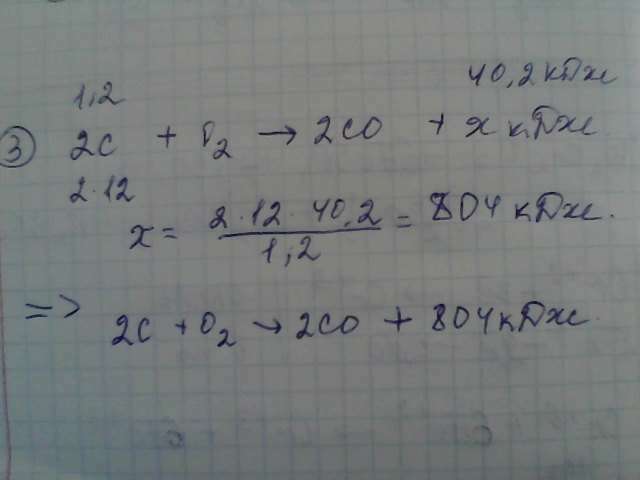 40,2 кДж
1,2
③ 2C + O₂ → 2CO + x кДж
2·12
x = 2·12·40,2 / 1,2 = 804 кДж.
=> 2C + O₂ → 2CO + 804 кДж.